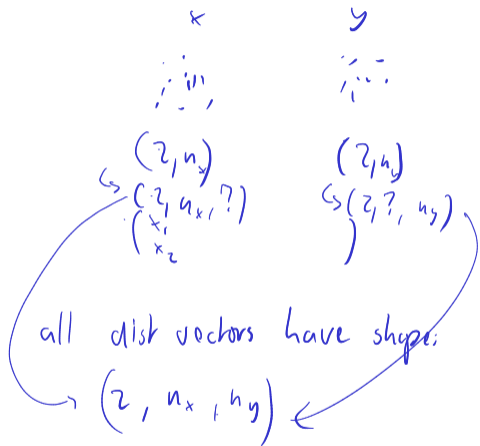 x y
(2, nx) (2, ny)
↪ (2, nx, ?) ↪ (2, ?, ny)
( x1 )
x2
all dist vectors have shape:
(2, nx, ny)